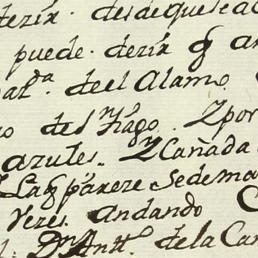 dezir. desde que se a
puede. dezir q̃ an
at.ᵈᵃ de el Alamo
o de Sⁿ tiago. Z por
azules. Z Cañada
Las pareze se dema
Vezes. andando
Dⁿ Antt.º de la Can